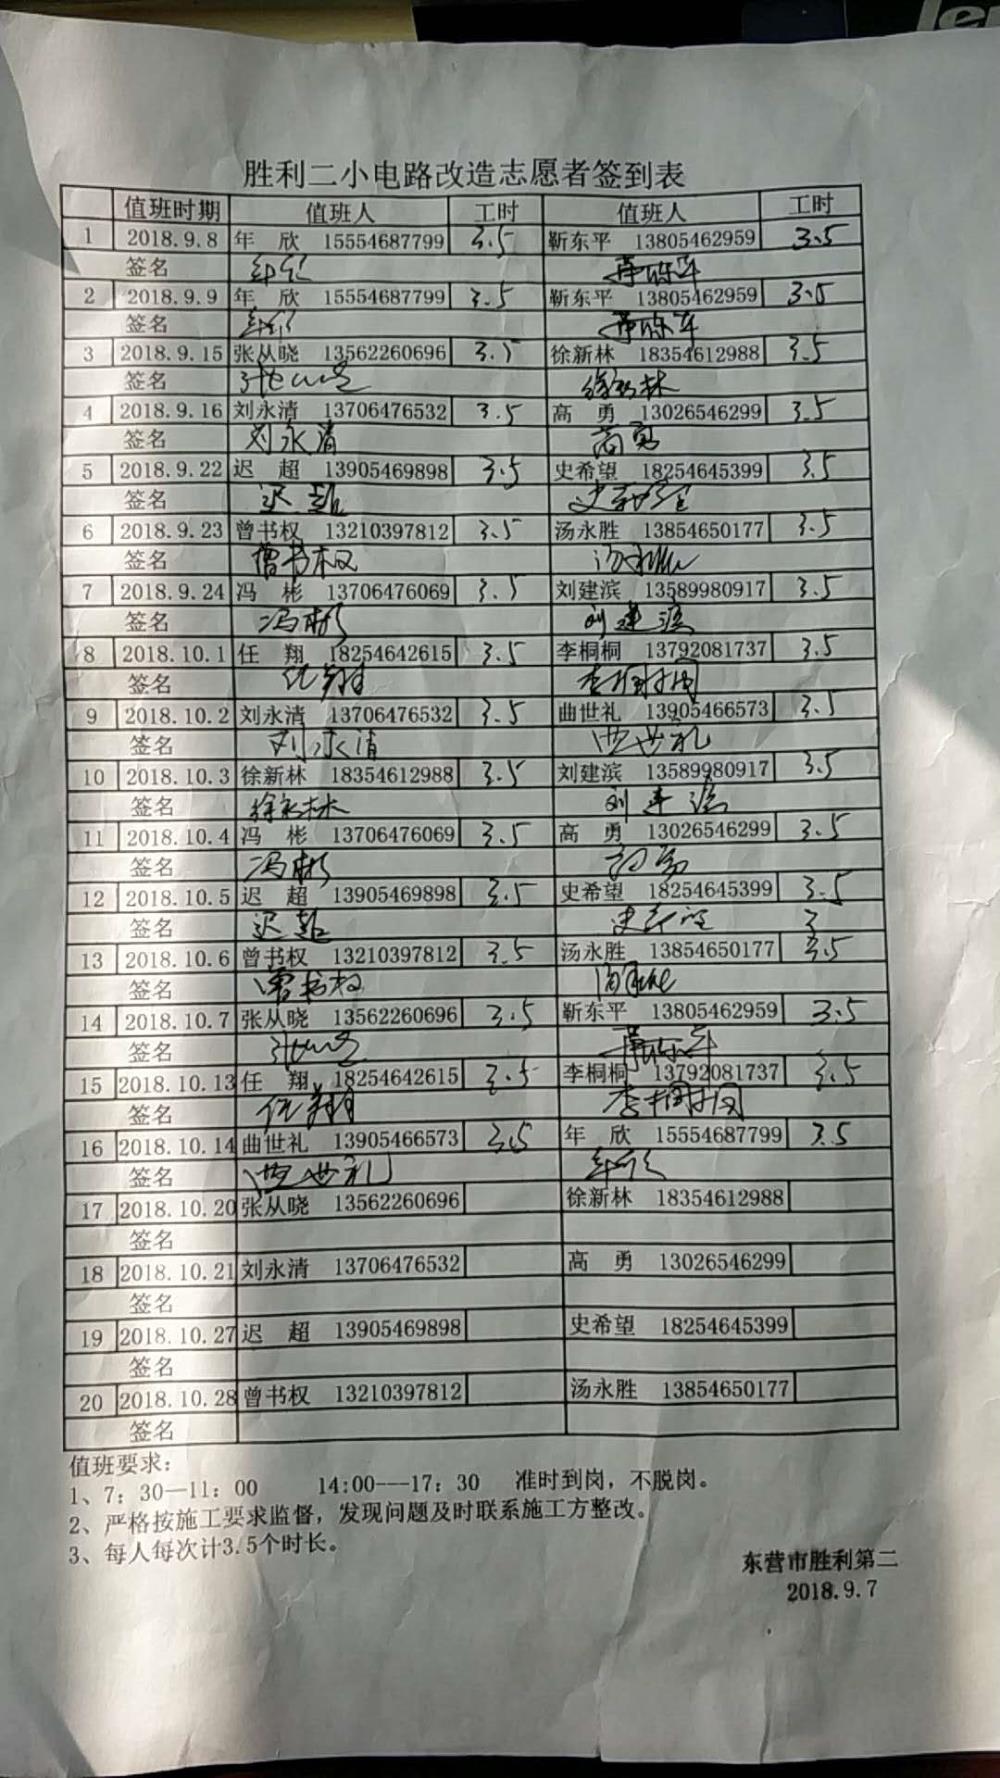 胜利二小电路改造志愿者签到表
值班时期 值班人 工时 值班人 工时
1 2018.9.8 年 欣 15554687799 3.5 靳东平 13805462959 3.5
签名 年欣
2 2018.9.9 年 欣 15554687799 3.5 靳东平 13805462959 3.5
签名 年欣
3 2018.9.15 张从晓 13562260696 3.5 徐新林 18354612988 3.5
签名 徐新林
4 2018.9.16 刘永清 13706476532 3.5 高 勇 13026546299 3.5
签名 刘永清 高勇
5 2018.9.22 迟 超 13905469898 3.5 史希望 18254645399 3.5
签名 迟超 史希望
6 2018.9.23 曾书权 13210397812 3.5 汤永胜 13854650177 3.5
签名 曾书权 汤永胜
7 2018.9.24 冯 彬 13706476069 3.5 刘建滨 13589980917 3.5
签名 冯彬 刘建滨
8 2018.10.1 任 翔 18254642615 3.5 李桐桐 13792081737 3.5
签名 任翔 李桐桐
9 2018.10.2 刘永清 13706476532 3.5 曲世礼 13905466573 3.5
签名 刘永清 曲世礼
10 2018.10.3 徐新林 18354612988 3.5 刘建滨 13589980917 3.5
签名 徐新林 刘建滨
11 2018.10.4 冯 彬 13706476069 3.5 高 勇 13026546299 3.5
签名 冯彬 高勇
12 2018.10.5 迟 超 13905469898 3.5 史希望 18254645399 3.5
签名 迟超 史希望 3
13 2018.10.6 曾书权 13210397812 3.5 汤永胜 13854650177 3.5
签名 曾书权
14 2018.10.7 张从晓 13562260696 3.5 靳东平 13805462959 3.5
签名
15 2018.10.13 任 翔 18254642615 3.5 李桐桐 13792081737 3.5
签名 任翔 李桐桐
16 2018.10.14 曲世礼 13905466573 3.5 年 欣 15554687799 3.5
签名 曲世礼 年欣
17 2018.10.20 张从晓 13562260696 徐新林 18354612988
签名
18 2018.10.21 刘永清 13706476532 高 勇 13026546299
签名
19 2018.10.27 迟 超 13905469898 史希望 18254645399
签名
20 2018.10.28 曾书权 13210397812 汤永胜 13854650177
签名
值班要求：
1、7：30—11：00 14:00---17：30 准时到岗，不脱岗。
2、严格按施工要求监督，发现问题及时联系施工方整改。
3、每人每次计3.5个时长。
东营市胜利第二
2018.9.7